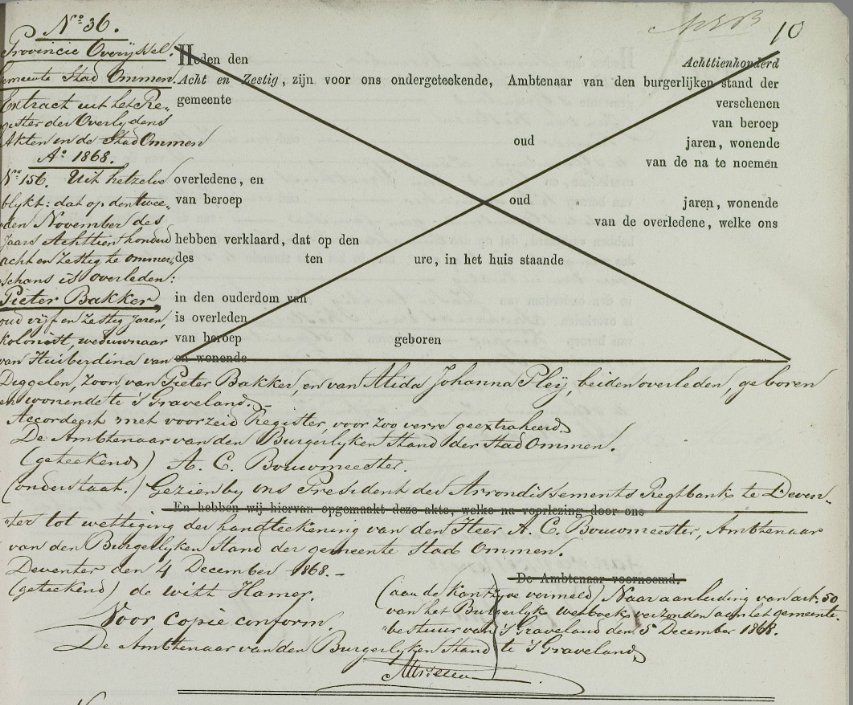 No. 36.
10
Provincie Overijssel.
Gemeente Stad Ommen.
Extract uit het Re-
gister der Overlydens
Akten in de Stad Ommen
Ao. 1868.
No. 156. Uit hetzelve
blykt: dat op den twee-
den November des
jaars Achttienhonderd
acht en Zestig te Ommer-
schans is overleden:
Pieter Bakker
oud vyf en Zestig jaren,
kolonist, weduwnaar
van Huiberdina van
Heden den Achttienhonderd
Acht en Zestig, zijn voor ons ondergeteekende, Ambtenaar van den burgerlijken stand der
gemeente verschenen
van beroep
oud jaren, wonende
van de na te noemen
overledene, en
van beroep oud jaren, wonende
van de overledene, welke ons
hebben verklaard, dat op den
des ten ure, in het huis staande
in den ouderdom van
is overleden
van beroep geboren
en wonende
Diggelen, zoon van Pieter Bakker, en van Alida Johanna Pleij, beiden overleden, geboren
en wonende te 's Graveland.
Accordeert met voorzeid Register, voor zoo verre geextraheerd
De Ambtenaar van den Burgerlyken Stand der Stad Ommen.
(geteekend) A. C. Bouwmeester.
(onderstaat.) Gezien by ons President der Arrondissements Regtbank te Deven-
En hebben wij hiervan opgemaakt deze akte, welke na voorlezing door ons
ter tot wettiging der handteekening van den Heer A. C. Bouwmeester, Ambtenaar
van den Burgerlyken Stand der gemeente Stad Ommen.
Deventer den 4 December 1868.-
De Ambtenaar voornoemd.
(geteekend) de Witt Hamer.
(aan de kant vermeld) Naar aanleiding van art. 50
van het Burgerlyk wetboek verzonden aan het gemeente-
bestuur van 's Graveland den 5 December 1868.
Voor copie conform
De Ambtenaar van den Burgerlyken Stand te 's Graveland